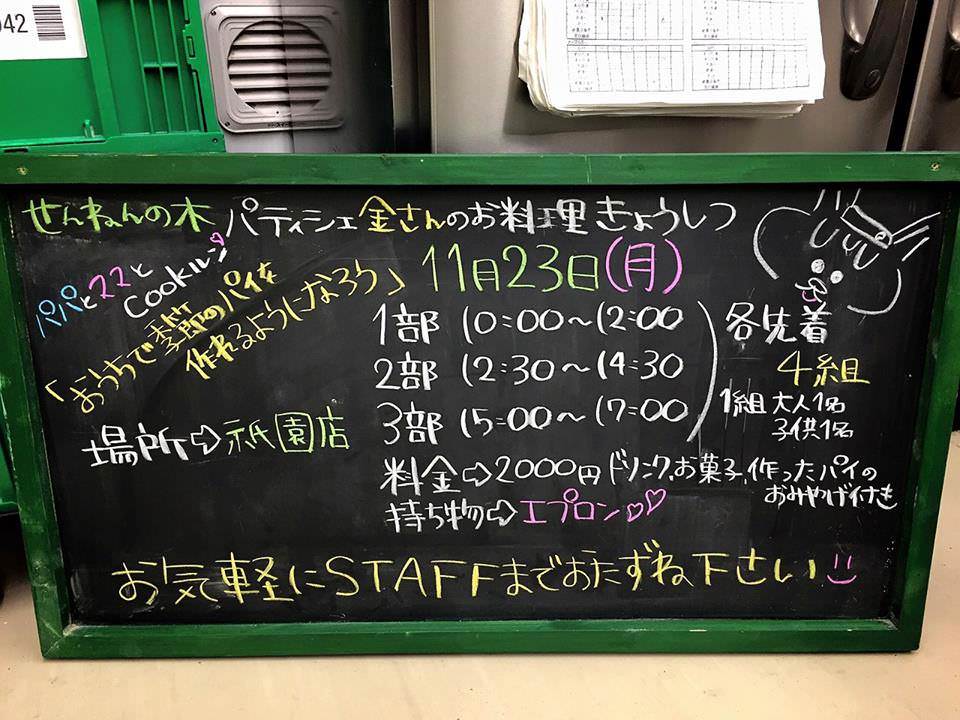 せんねんの木 パティシェ金さんのお料理きょうしつ
パパとママと
COOKルン
「おうちで季節のパイを
作れるようになろう」
11月23日(月)
1部 10:00～12:00
2部 12:30～14:30
3部 15:00～17:00
各先着
4組
1組 大人1名
子供1名
場所⇨祇園店
料金⇨2000円 ドリンク、お菓子、作ったパイの
おみやげ付き
持ち物⇨エプロン♡♡
お気軽にSTAFFまでおたずね下さい
042